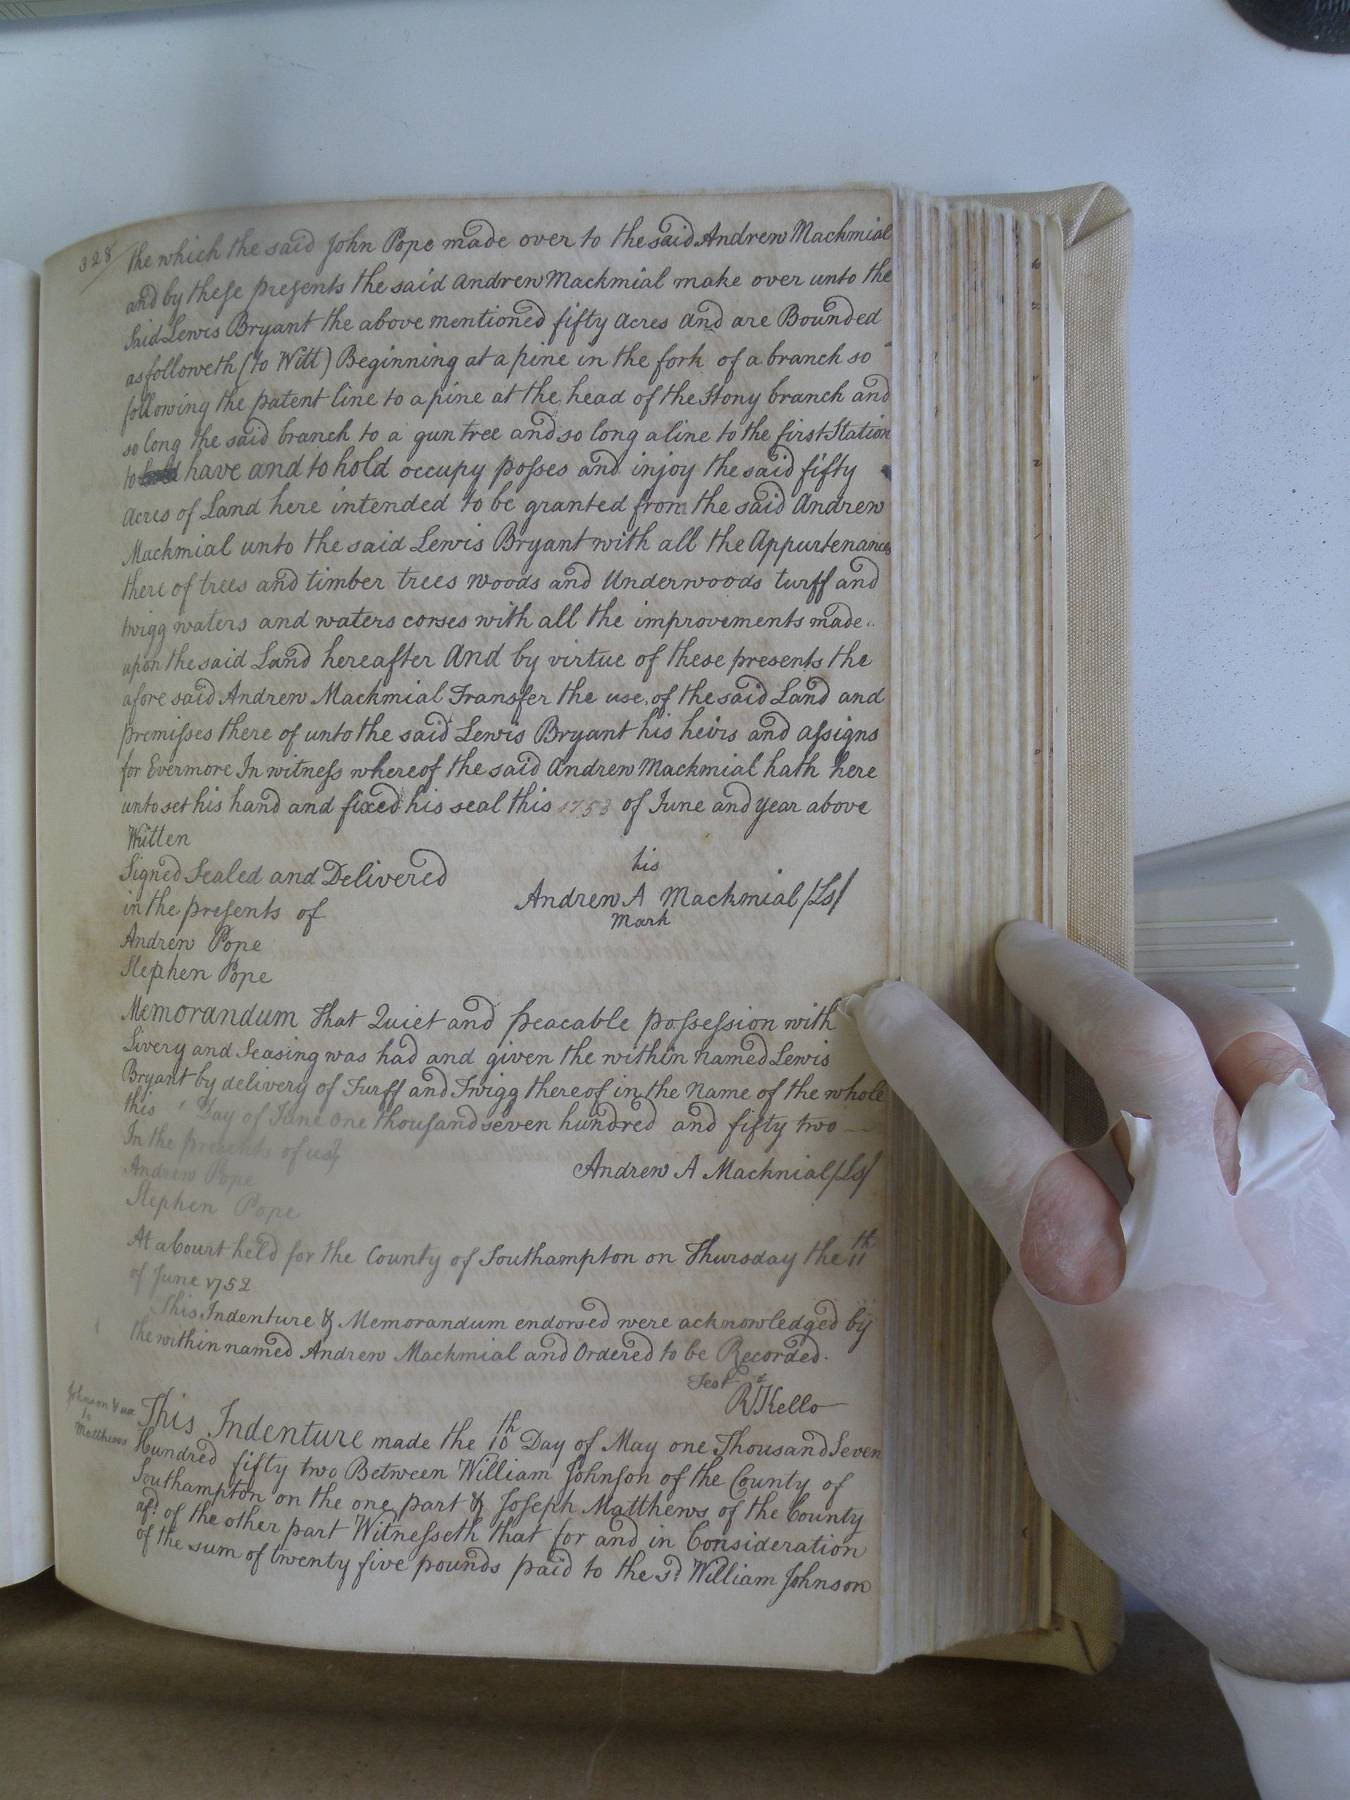 328 the which the said John Pope made over to the said Andrew Mackmial
and by these presents the said Andrew Mackmial make over unto the
said Lewis Bryant the above mentioned fifty Acres and are Bounded
as followeth (to Witt) Beginning at a pine in the fork of a branch so
following the patent line to a pine at the head of the Stony branch and
so long the said branch to a gun tree and so long a line to the first Station
to have and to hold occupy posses and injoy the said fifty
Acres of Land here intended to be granted from the said Andrew
Mackmial unto the said Lewis Bryant with all the Appurtenances
there of trees and timber trees woods and Underwoods turff and
twigg waters and waters corses with all the improvements made
upon the said Land hereafter And by virtue of these presents the
afore said Andrew Mackmial Transfer the use of the said Land and
premisses there of unto the said Lewis Bryant his heirs and assigns
for Evermore In witness whereof the said Andrew Mackmial hath here
unto set his hand and fixed his seal this 1753 of June and year above
Written
Signed Sealed and Delivered
in the presents of
his
Andrew A Mackmial (Ls)
Mark
Andrew Pope
Stephen Pope
Memorandum That Quiet and peacable possession with
Livery and Seasing was had and given the within named Lewis
Bryant by delivery of Turff and Twigg thereof in the Name of the whole
this Day of June one thousand seven hundred and fifty two
In the presents of us
Andrew A Macknial (Ls)
Andrew Pope
Stephen Pope
At a Court held for the County of Southampton on Thursday the 11th
of June 1752
This Indenture & Memorandum endorsed were acknowledged by
the within named Andrew Mackmial and Ordered to be Recorded.
Test
R Kello
Johnson & ux
to
Matthews
This Indenture made the 10th Day of May one Thousand Seven
Hundred fifty two Between William Johnson of the County of
Southampton on the one part & Joseph Matthews of the County
afd. of the other part Witnesseth that for and in Consideration
of the sum of twenty five pounds paid to the sd. William Johnson